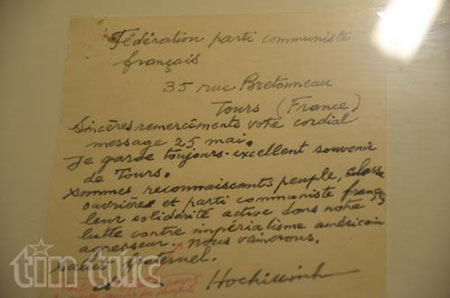 Fédération parti communiste
français
35 rue Bretonneau
Tours (France)
Sincères remerciments votre cordial
message 25 mai.
Je garde toujours excellent souvenir
de Tours.
Sommes reconnaissants peuple, classe
ouvrière et parti communiste français
leur solidérité active dans notre
lutte contre impérialisme américain
agresseur. Nous vaincrons.
Salut fraternel.
Hochiminh
tin tức